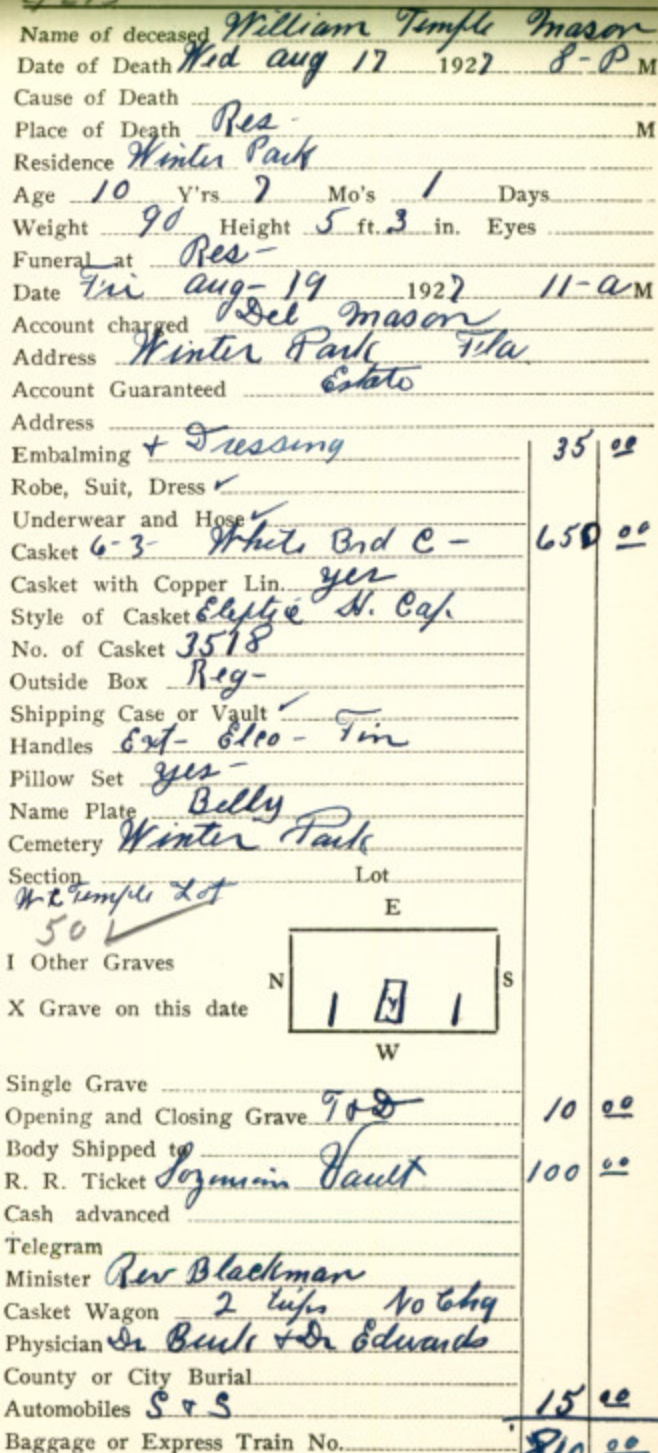 Name of deceased William Temple Mason
Date of Death Wed Aug 17 1927 8-P M
Cause of Death
Place of Death Res- M
Residence Winter Park
Age 10 Y'rs 7 Mo's 1 Days
Weight 90 Height 5 ft. 3 in. Eyes
Funeral at Res-
Date Fri Aug- 19 1927 11-a M
Account charged Del Mason
Address Winter Park Fla
Account Guaranteed Estate
Address
Embalming + Dressing 35 00
Robe, Suit, Dress ✓
Underwear and Hose ✓
Casket 6-3- White Brd C- 650 00
Casket with Copper Lin. yes
Style of Casket Eleptic H. Cap.
No. of Casket 3518
Outside Box Reg-
Shipping Case or Vault ✓
Handles Ext- Elco- Fin
Pillow Set yes-
Name Plate Billy
Cemetery Winter Park
Section Lot
W C Temple Lot
50 ✓
E
I Other Graves
N S
X Grave on this date
W
Single Grave
Opening and Closing Grave T & D 10 00
Body Shipped to
R. R. Ticket Vault 100 00
Cash advanced
Telegram
Minister Rev Blackman
Casket Wagon 2 trips No Chg
Physician Dr & Dr Edwards
County or City Burial
Automobiles S & S 15 00
Baggage or Express Train No. 810 00